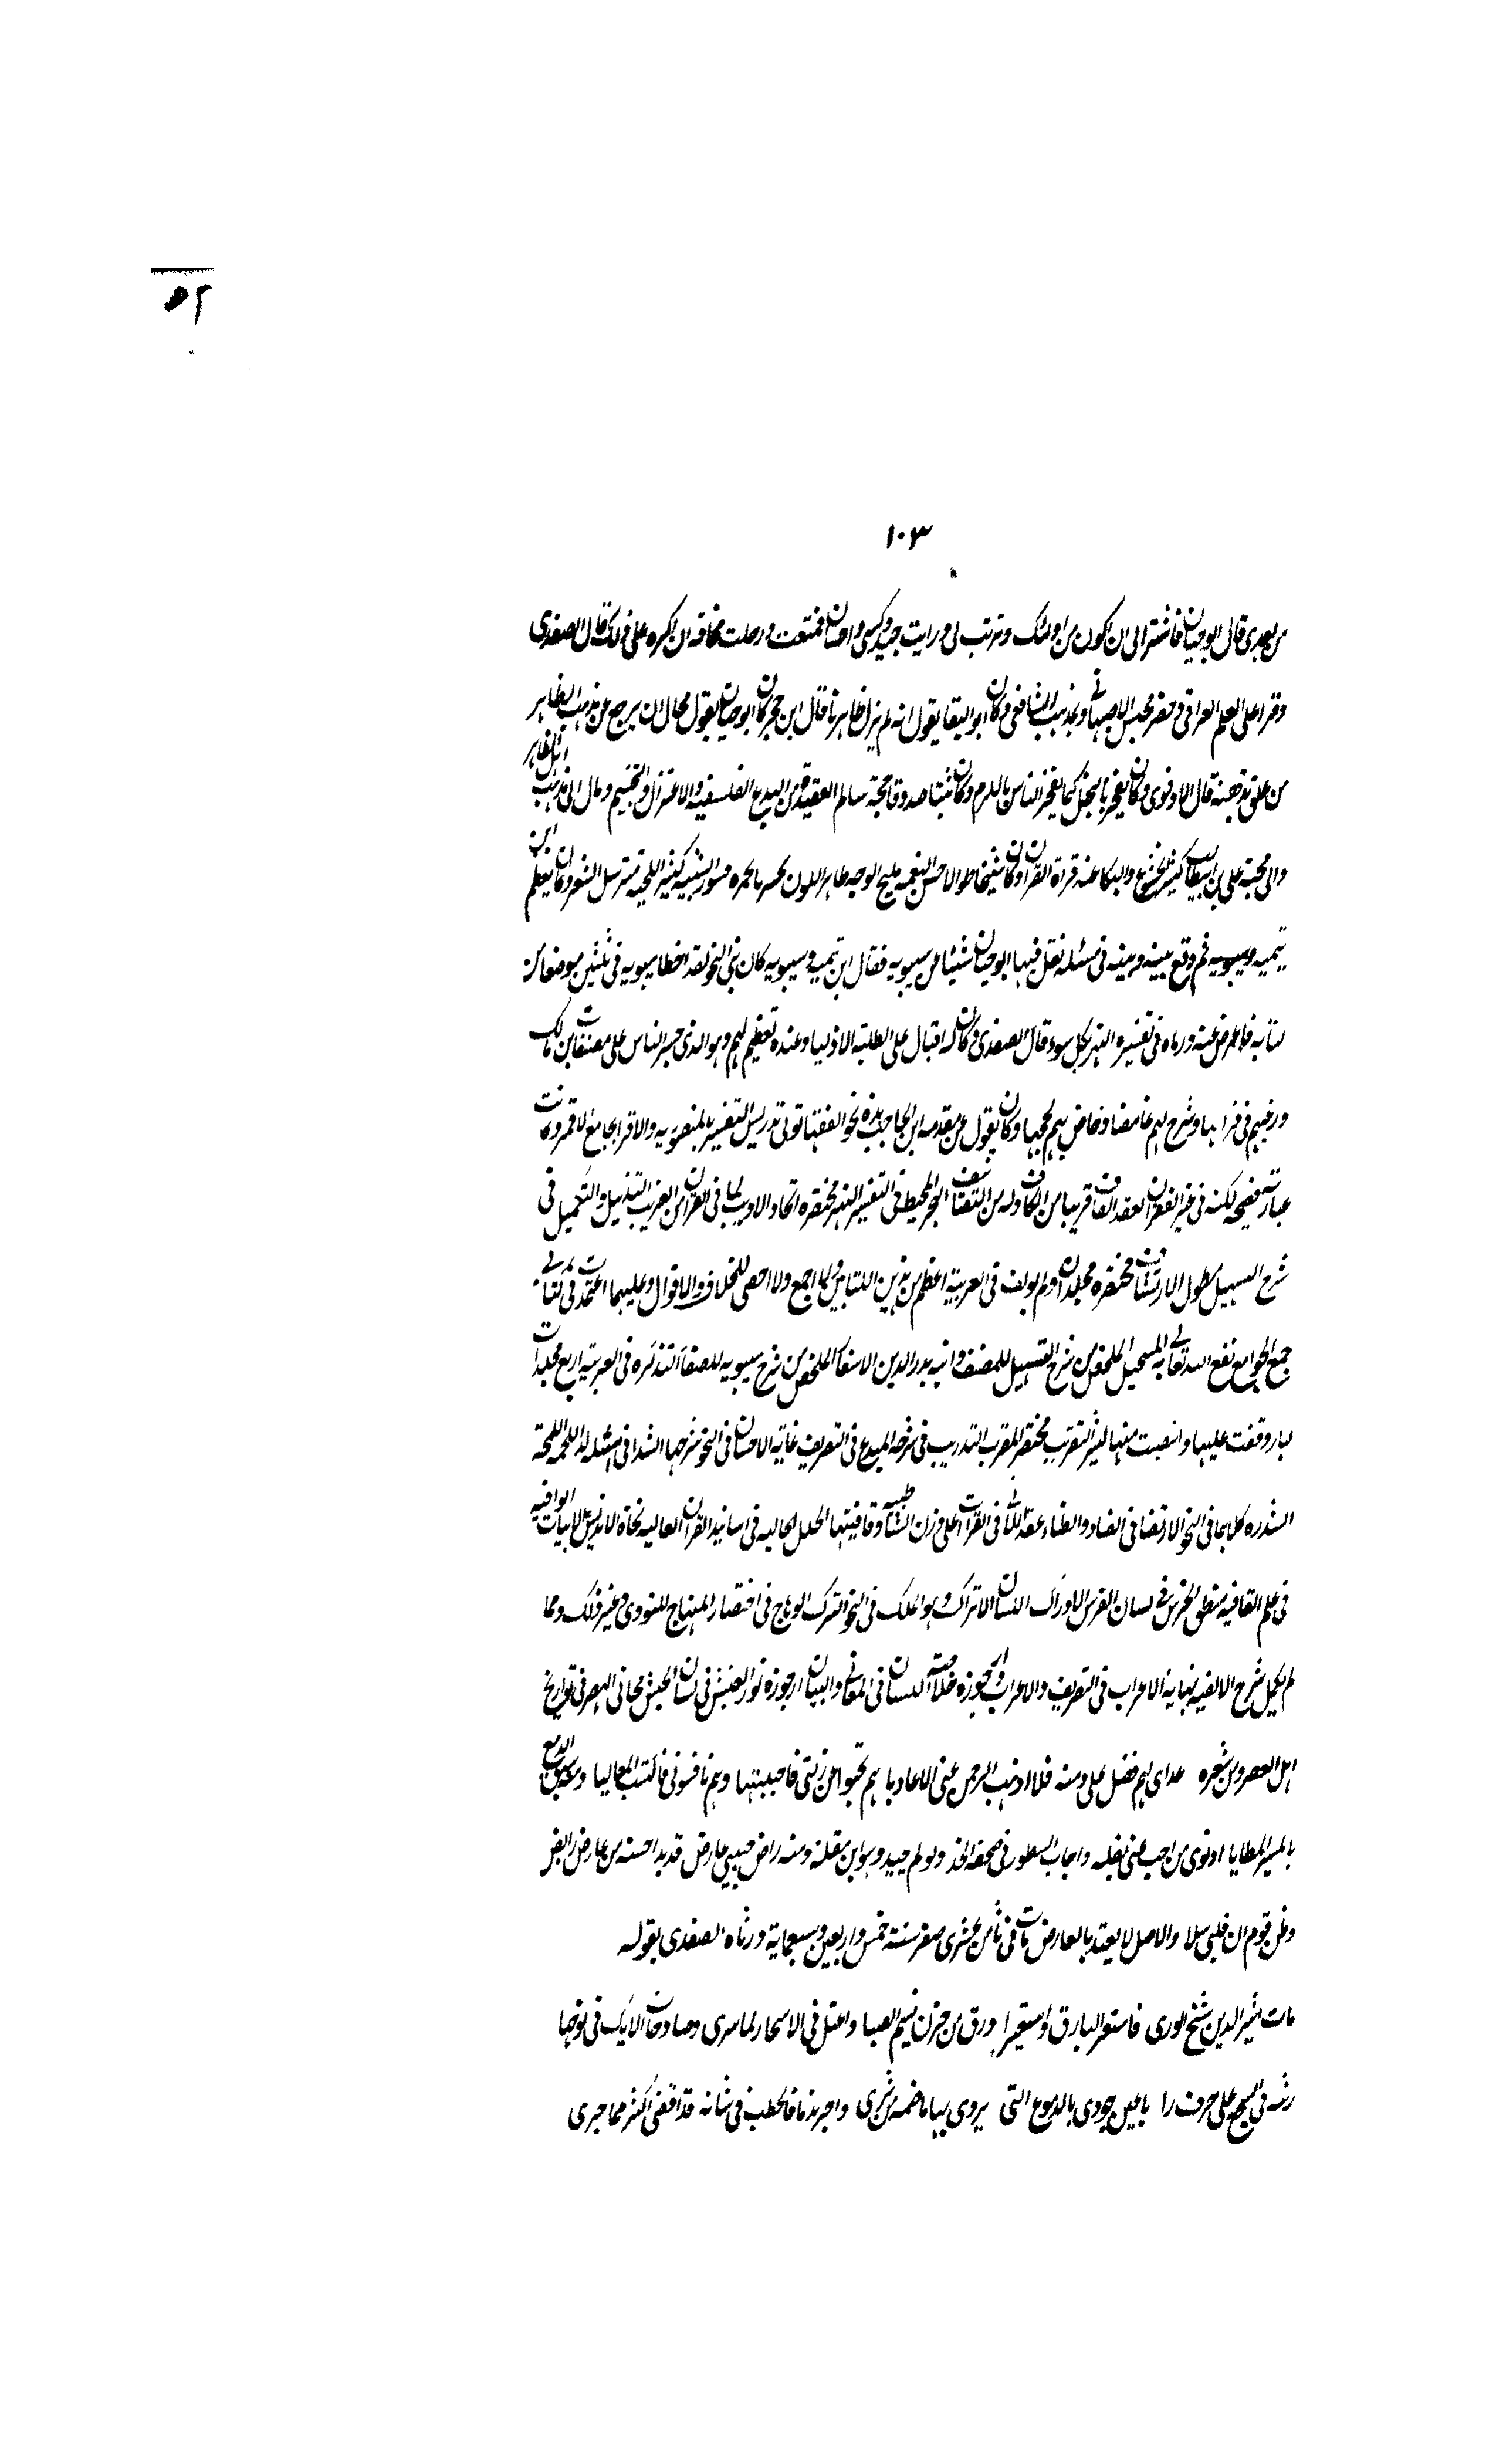 ٥٢
١٠٣
من بعدى قال ابو حيان فاشتر الى ان اكون من اولئك ويرتب لى وراتب جيد وكسى واحسان فتمنعت ورحلت مخافة ان اكره على ذلك قال الصفدى
وقرا على العلم العراقى وحضر مجلس الاصبهانى وتمذهب للشافعى وكان ابو البقا يقول انه لم يزل ظاهريا قال ابن حجر كان ابو حيان يقول محال ان يرجع عن مذهب الظاهر
من علق بذهنه قال الادفوى وكان يفخر بالبخل كما يفخر الناس بالكرم وكان ثبتا صدوقا حجة سالم العقيدة من البدع الفلسفيه والاعتزال والتجسيم ومال الى مذهب اهل الظاهر
والى محبة على بن ابيطالب كثير الخشوع والبكا عند قراة القران وكان شيخا طوالا حسن النغمه مليح الوجه ظاهر اللون مشربا بالحمره منور الشيبه كبير اللحيه مسترسل الشعر وكان يعظم ابن
تيميه ثم وقع بينه وبينه فى مسئله نقل فيها ابو حيان شيئا من سيبويه فقال ابن تيميه وسيبويه كان نبى النحو لقد اخطا سيبويه فى ثلثين موضعا من
كتابه فاعرض عنه ورماه فى تفسيره النهر بكل سوء قال الصفدى وكان له اقبال على الطلبة الاذكيا وعنده تعظيم لهم وهو الذى جسر الناس على مصنفات ابن مالك
ورغبهم فى قراتها وشرح لهم غامضها وخاض بهم لججها وكان يقول عن مقدمه ابن الحاجب هذه نحو الفقها تولى تدريس التفسير بالمنصوريه والاقرا بجامع الاقمر وكانت
عبارته فصيحه لكنه فى غير القران يعقد القاف قريبا من الكاف وله من التصانيف البحر المحيط فى التفسير النهر مختصره اتحاف الاديب بما فى القران من الغريب التذييل والتكميل فى
شرح التسهيل مطول الارتشاف مختصره مجلدان ولم يولف فى العربية اعظم من هذين الكتابين ولا اجمع ولا احصى للخلاف والاقوال وعليهما اعتمدت فى كتابى
جمع الجوامع نفع الله تعالى به التنخيل الملخص من شرح التسهيل للمصنف وابنه بدر الدين الاسفار الملخص من شرح سيبويه للصفار التذكره فى العربية اربع مجلدات
كبار وقفت عليها وانتقيت منها كثيرا التقريب مختصر المقرب التدريب فى شرحه المبدع فى التصريف غاية الاحسان فى النحو شرحها الشذا فى مسئله كذا اللمحه
الشذره كلاهما فى النحو الارتضا فى الضاد والظاء عقد اللالى فى القرات على وزن الشاطبيه وقافيتها الحلل الحاليه فى اسانيد القران العاليه نحاة الاندلس الابيات الوافيه
فى علم القافيه منطق الخرس فى لسان الفرس الادراك للسان الاتراك زهو الملك فى نحو الترك الوهاج فى اختصار المنهاج للنووى وغير ذلك ومما
لم يكمل شرح الالفيه نهاية الاعراب فى التصريف والاعراب ارجوزه خلاصة البيان فى المعانى والبيان ارجوزه نور الغبش فى لسان الحبش مجانى الهصر فى تواريخ
اهل العصر ومن شعره عداى لهم فضل على ومنه فلا اذهب الرحمن عنى الاعاديا هم بحثوا عن زلتى فاجتنبتها وهم نافسونى فاكتسبت المعاليا وسبق الدمع
بالمسير المطايا اذ نوى من احب عنى نقله واجاد السطور فى صفحة الخد ولم لم يجيد وهو ابن مقله ومنه راض حبيبى عارض قد بدا احسنه من عارض رائض
وظن قوم ان قلبى سلا والاصل لا يعتد بالعارض مات فى ثامن عشرى صفر سنة خمس واربعين وسبعمائة ورثاه الصفدى بقوله
مات اثير الدين شيخ الورى فاستعر البارق واستعبرا ورق من حزن نسيم الصبا واعتل فى الاسحار لما سرى وصادحات الايك فى نوحها
رثته فى السجع على حرف را يا عين جودى بالدموع التى يروى بها ما ضمه من ثرى واجر دما فالخطب فى شانه قد اقتضى اكثر مما جرى